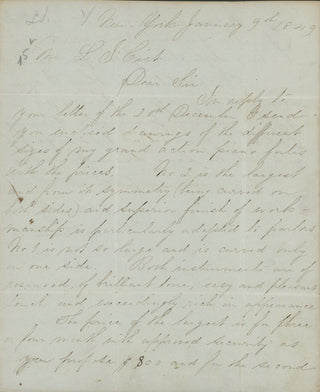 New York January 9th 1849
Mr L. J. Cist
Dear Sir
In reply to
your letter of the 20th December I send
you enclosed drawings of the different
sizes of my grand action piano fortes
with the prices. No 2 is the largest
and from its symmetry (being curved on
both sides) and superior finish of work-
manship is particularly adapted to parlors
No 1 is not so large and is curved only
on one side. Both instruments are of
rosewood, of brilliant tone, easy and pleasant
touch and exceedingly rich in appearance
The price of the largest is for three
or four month with approved security as
you propose $800 and for the second